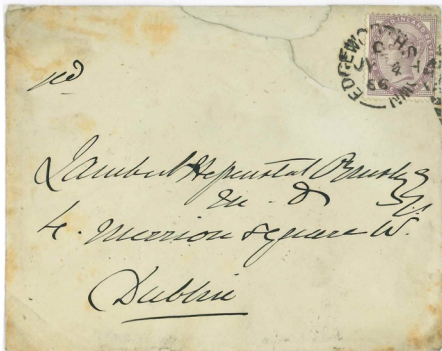 EDGEWORTHSTOWN
C
JA 4
86
pd
Lambert Hepenstal Ormsby
M.D
4. Merrion Square W.
Dublin